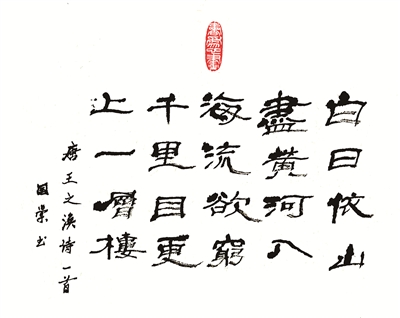 白日依山
盡黄河入
海流欲窮
千里目更
上一層樓
唐王之涣诗一首
书